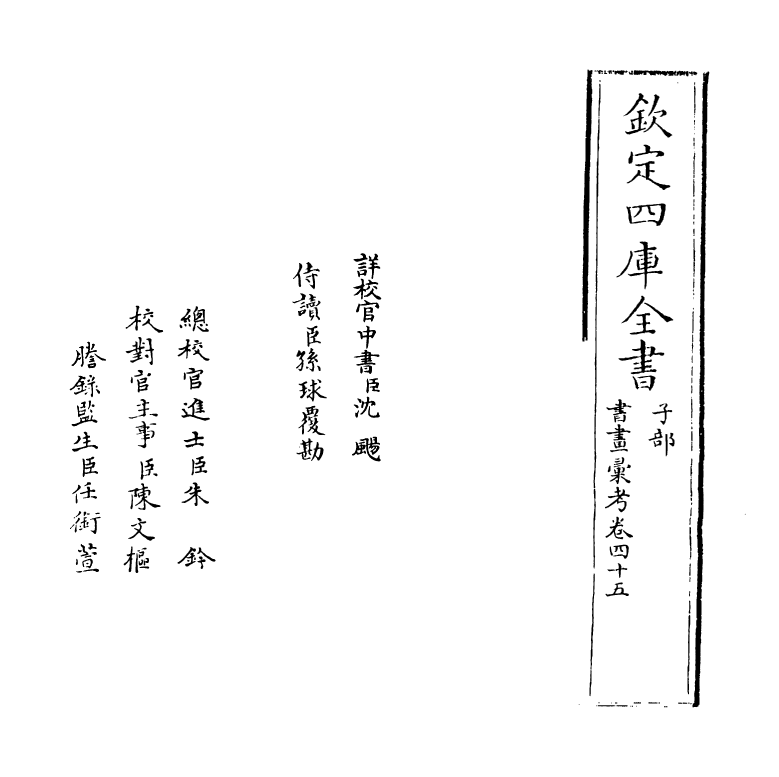 欽定四庫全書
子部
書畫彙考卷四十五
詳校官中書臣沈颺
侍讀臣孫球覆勘
總校官進士臣朱鈐
校對官主事臣陳文樞
謄錄監生臣任銜萱